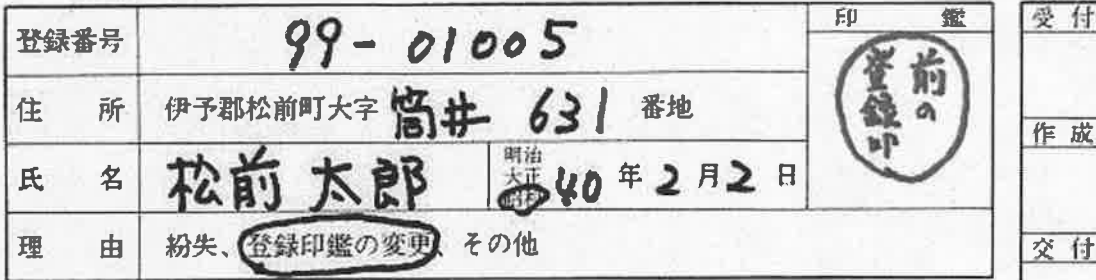 登録番号 99-01005
印鑑
前の
登録印
住所 伊予郡松前町大字 筒井 631 番地
氏名 松前 太郎 明治 大正 昭和 40 年 2 月 2 日
理由 紛失、登録印鑑の変更、その他
受付
作成
交付